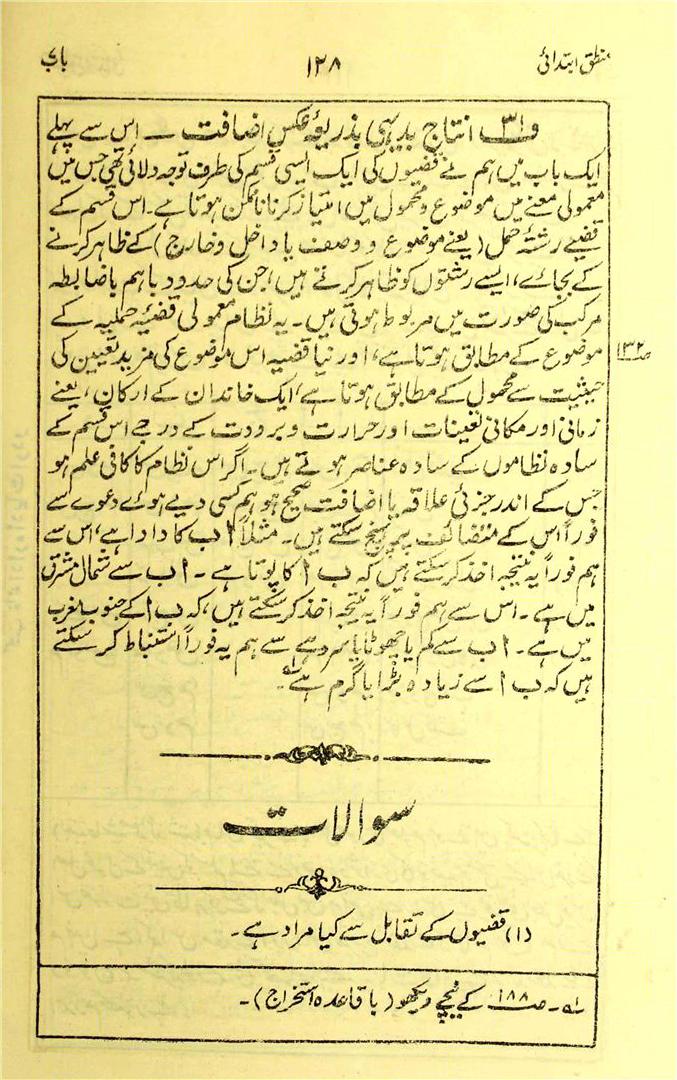 منطق ابتدائی
۱۳۸
باب
ف۳۱ انتاج بدیہی بذریعۂ عکس اضافت — اس سے پہلے
ایک باب میں ہم نے قضیوں کی ایک ایسی قسم کی طرف توجہ دلائی تھی جس میں
معمولی معنے میں موضوع و محمول میں امتیاز کرنا ناممکن ہوتا ہے۔ اس قسم کے
قضیے رشتۂ حمل (یعنے موضوع و وصف یا داخل و خارج) کے ظاہر کرنے
کے بجائے، ایسے رشتوں کو ظاہر کرتے ہیں، جن کی حدود باہم باضابطہ
مرکب کی صورت میں مربوط ہوتی ہیں۔ یہ نظام معمولی قضیۂ حملیہ کے
موضوع کے مطابق ہوتا ہے، اور نیا قضیہ اس موضوع کی مزید تعیین کی
ص۱۳۲
حیثیت سے محمول کے مطابق ہوتا ہے، ایک خاندان کے ارکان، یعنے
زمانی اور مکانی تعینات اور حرارت و برودت کے درجے اس قسم کے
سادہ نظاموں کے سادہ عناصر ہوتے ہیں۔ اگر اس نظام کا کافی علم ہو
جس کے اندر جزئی علاقہ یا اضافت صحیح ہو ہم کسی دیے ہوئے دعوے سے
فوراً اس کے متضائف پر پہنچ سکتے ہیں۔ مثلاً ا ب کا دادا ہے، اس سے
ہم فوراً یہ نتیجہ اخذ کر سکتے ہیں کہ ب ا کا پوتا ہے۔ ا ب سے شمال مشرق
میں ہے۔ اس سے ہم فوراً یہ نتیجہ اخذ کر سکتے ہیں، کہ ب ا کے جنوب مغرب
میں ہے۔ ا ب سے کم یا چھوٹا یا سرد ہے سے ہم یہ فوراً استنباط کر سکتے
ہیں کہ ب ا سے زیادہ بڑا یا گرم ہے۔
سوالات
(۱) قضیوں کے تقابل سے کیا مراد ہے۔
لہ۔ ص۱۸۸ کے نیچے دیکھو (باقاعدہ استخراج)۔